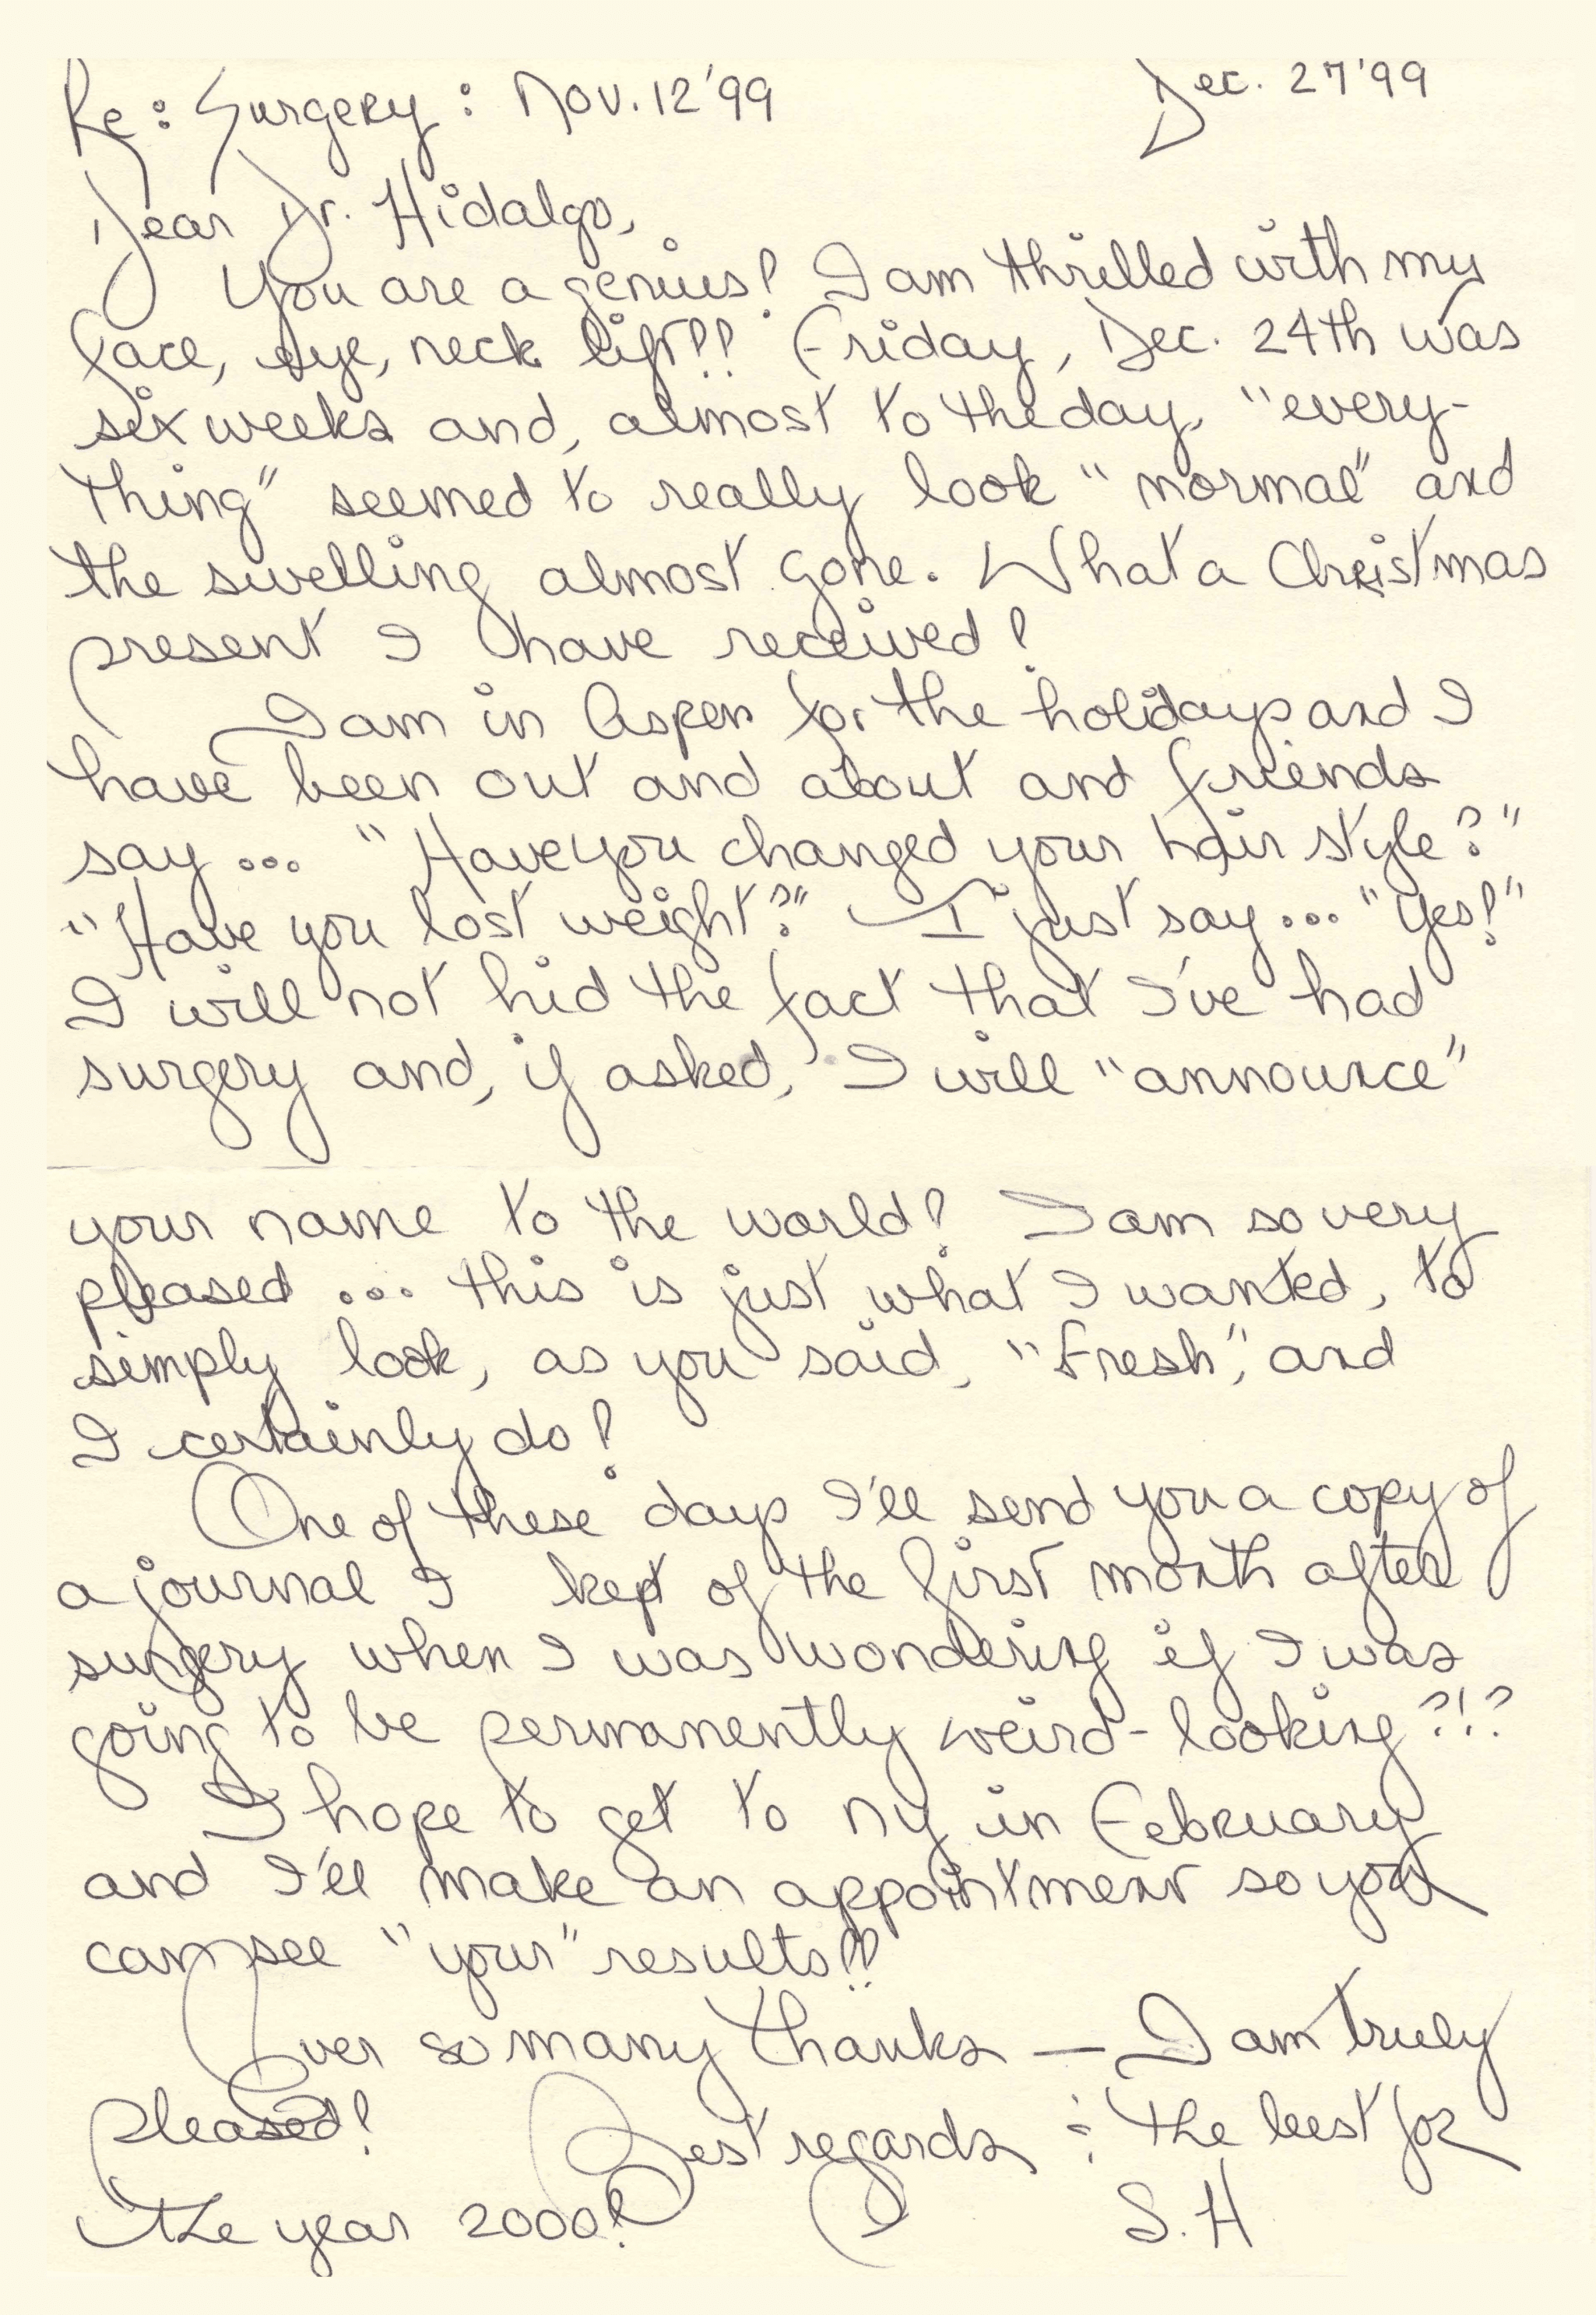 Re: Surgery: Nov. 12 '99
Dec. 27 '99
Dear Dr. Hidalgo,
You are a genius! I am thrilled with my
face, eye, neck lift!! Friday, Dec. 24th was
six weeks and, almost to the day, "every-
thing" seemed to really look "normal" and
the swelling almost gone. What a Christmas
present I have received!
I am in Aspen for the holidays and I
have been out and about and friends
say... "Have you changed your hair style?"
"Have you lost weight?" I just say... "Yes!"
I will not hid the fact that I've had
surgery and, if asked, I will "announce"
your name to the world! I am so very
pleased... this is just what I wanted, to
simply look, as you said, "Fresh", and
I certainly do!
One of these days I'll send you a copy of
a journal I kept of the first month after
surgery when I was wondering if I was
going to be permanently weird-looking?!?
I hope to get to NY in February
and I'll make an appointment so you
can see "your" results!!
Ever so many thanks — I am truly
pleased! Best regards ÷ the best for
the year 2000! S.H